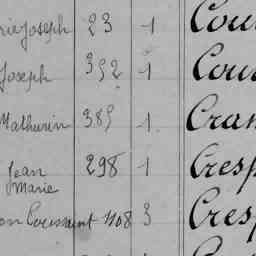 rie Joseph 23 1 Cou
Joseph 392 1 Cou
Mathurin 385 1 Cran
Jean Marie 298 1 Cresp
on Toussaint 1108 3 Cresp